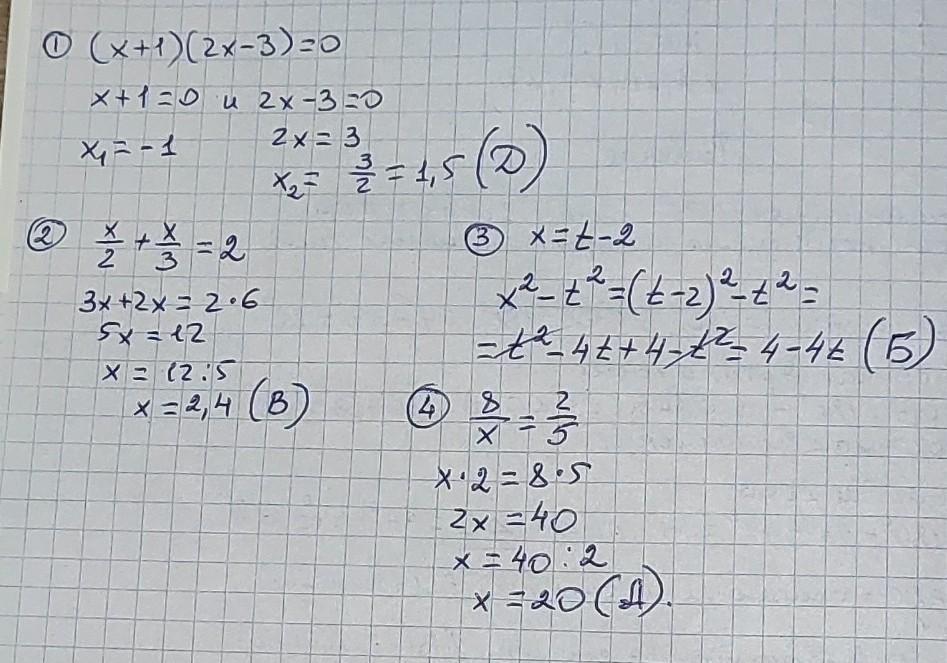 ① (x+1)(2x-3)=0
x+1=0 и 2x-3=0
x₁=-1
2x=3
x₂= 3/2 = 1,5 (Д)
② x/2 + x/3 = 2
3x+2x=2·6
5x=12
x=12:5
x=2,4 (В)
③ x=t-2
x²-t²=(t-2)²-t²=
=t²-4t+4-t²=4-4t (Б)
④ 8/x = 2/5
x·2=8·5
2x=40
x=40:2
x=20 (А).